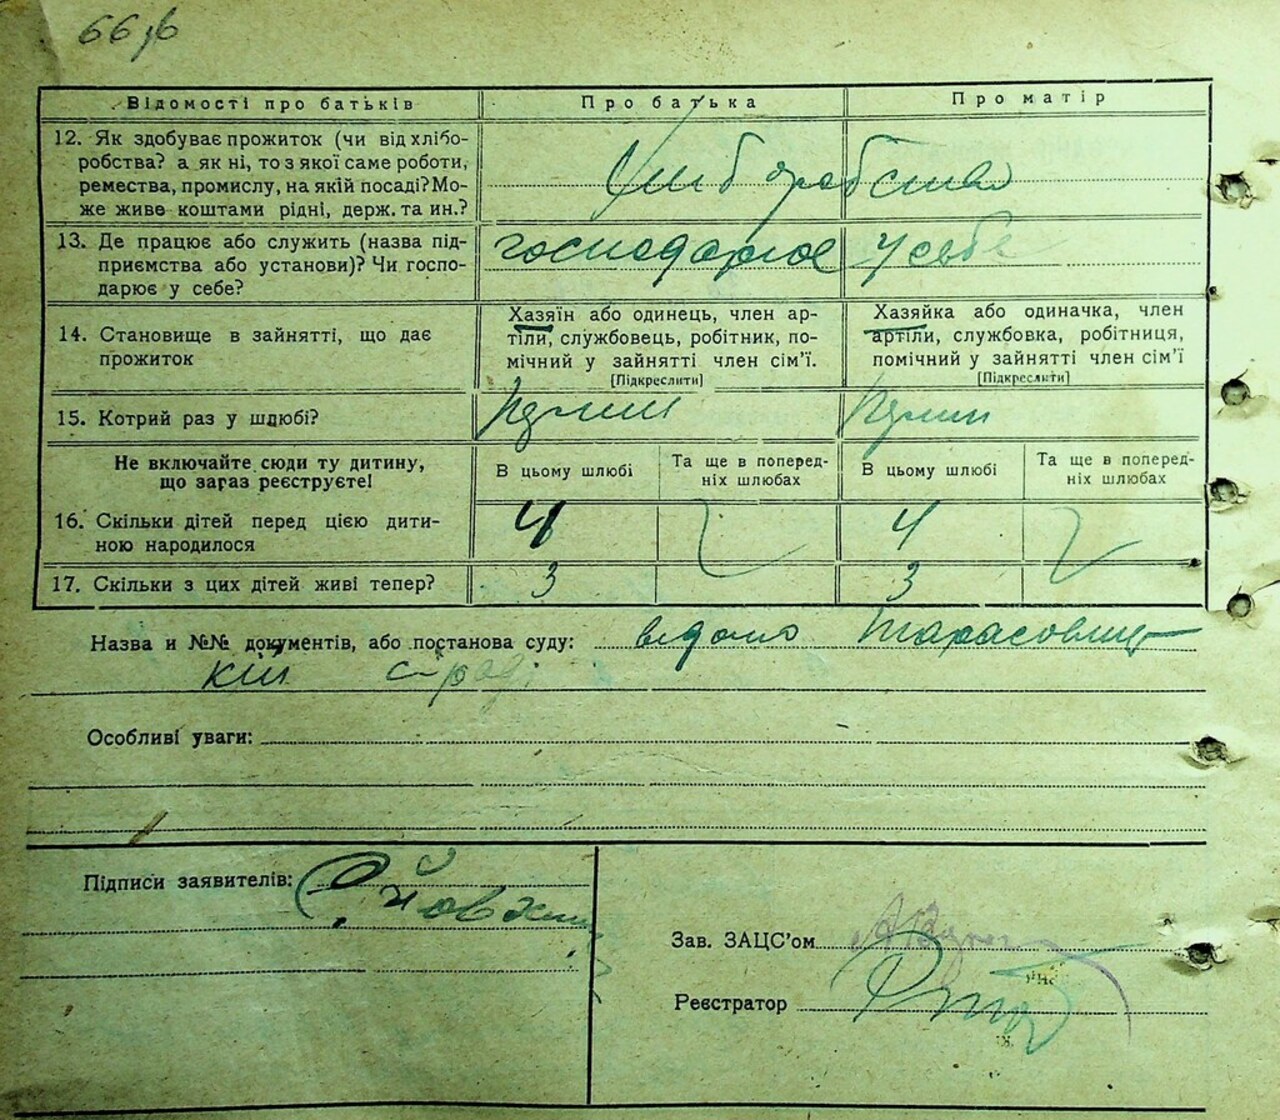 66
Відомості про батьків
Про батька
Про матір
12. Як здобуває прожиток (чи від хлібо-
робства? а як ні, то з якої саме роботи,
ремества, промислу, на якій посаді? Мо-
же живе коштами рідні, держ. та ин.?
13. Де працює або служить (назва під-
приємства або установи)? Чи госпо-
дарює у себе?
господарює у себе
14. Становище в зайнятті, що дає
прожиток
Хазяїн або одинець, член ар-
тіли, службовець, робітник, по-
мічний у зайнятті член сім'ї.
[Підкреслити]
Хазяйка або одиначка, член
артіли, службовка, робітниця,
помічний у зайнятті член сім'ї
[Підкреслити]
15. Котрий раз у шлюбі?
Не включайте сюди ту дитину,
що зараз реєструєте!
В цьому шлюбі
Та ще в поперед-
ніх шлюбах
В цьому шлюбі
Та ще в поперед-
ніх шлюбах
16. Скільки дітей перед цією дити-
ною народилося
4
4
17. Скільки з цих дітей живі тепер?
3
3
Назва и №№ документів, або постанова суду: відомо Тарасовиць
кій с-раді
Особливі уваги:
Підписи заявителів:
Зав. ЗАЦС'ом
Реєстратор